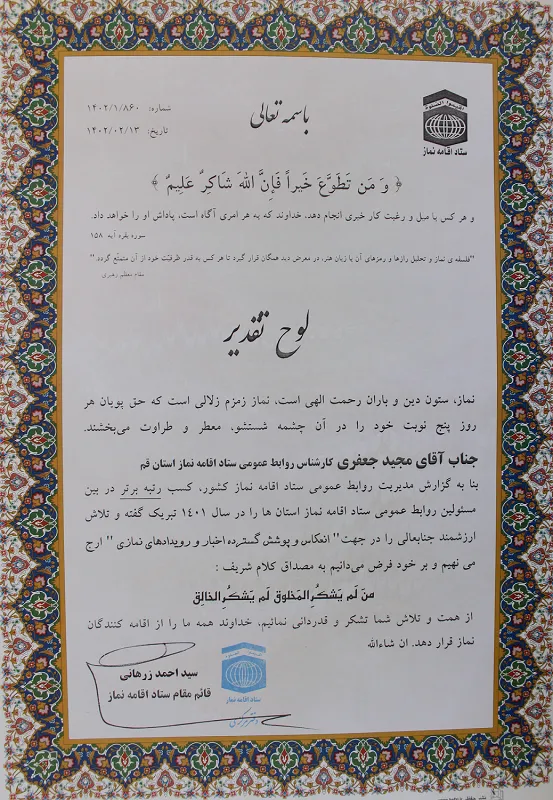 باسمه تعالی
شماره: ۱۴۰۲/۱/۸۶۰
تاریخ: ۱۴۰۲/۰۲/۱۳
اقیموا الصلوة
ستاد اقامه نماز
﴿ وَ مَن تَطَوَّعَ خَیراً فَإِنَّ اللهَ شَاکِرٌ عَلِیمٌ ﴾
و هر کس با میل و رغبت کار خیری انجام دهد، خداوند که به هر امری آگاه است، پاداش او را خواهد داد.
سوره بقره آیه ۱۵۸
"فلسفه ی نماز و تحلیل رازها و رمزهای آن با زبان هنر، در معرض دید همگان قرار گیرد تا هر کس به قدر ظرفیّت خود از آن متمتّع گردد."
مقام معظم رهبری
لوح تقدیر
نماز، ستون دین و باران رحمت الهی است، نماز زمزم زلالی است که حق پویان هر
روز پنج نوبت خود را در آن چشمه شستشو، معطر و طراوت می‌بخشند.
جناب آقای مجید جعفری کارشناس روابط عمومی ستاد اقامه نماز استان قم
بنا به گزارش مدیریت روابط عمومی ستاد اقامه نماز کشور، کسب رتبه برتر در بین
مسئولین روابط عمومی ستاد اقامه نماز استان ها را در سال ۱۴۰۱ تبریک گفته و تلاش
ارزشمند جنابعالی را در جهت" انعکاس و پوشش گسترده اخبار و رویدادهای نمازی " ارج
می نهیم و بر خود فرض می‌دانیم به مصداق کلام شریف :
مَن لَم یَشکُرِ المَخلوق لَم یَشکُرِ الخالِق
از همت و تلاش شما تشکر و قدردانی نمائیم، خداوند همه ما را از اقامه کنندگان
نماز قرار دهد. ان شاءالله
سید احمد زرهانی
قائم مقام ستاد اقامه نماز
ستاد اقامه نماز
دفتر مرکزی